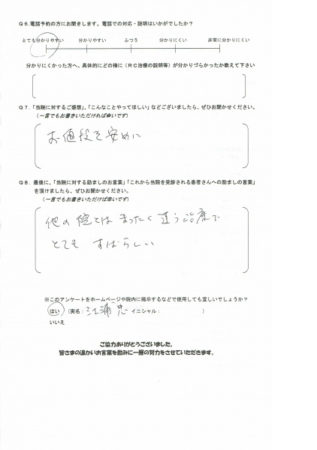 Q6.電話予約の方にお聞きします。電話での対応・説明はいかがでしたか？
とても分かりやすい 分かりやすい ふつう 分かりにくい 非常に分かりにくい
分かりにくかった方へ、具体的にどの様に（RC治療の説明等）が分かりづらかったか教えて下さい
Q7.「当院に対するご感想」、「こんなことやってほしい」などございましたら、ぜひお聞かせください。
（一言でもお書きいただければ幸いです）
お値段を安めに
Q8.最後に、「当院に対する励ましのお言葉」「これから当院を受診される患者さんへの励ましの言葉」
を頂けましたら、ぜひお聞かせください。
（一言でもお書きいただければ幸いです）
他の院とはまったく違う治療で
とても すばらしい
※このアンケートをホームページや院内に掲示するなどで使用しても宜しいでしょうか？
はい （実名： イニシャル： ）
いいえ
ご協力ありがとうございました。
皆さまの温かいお言葉を励みに一層の努力をさせていただきます。